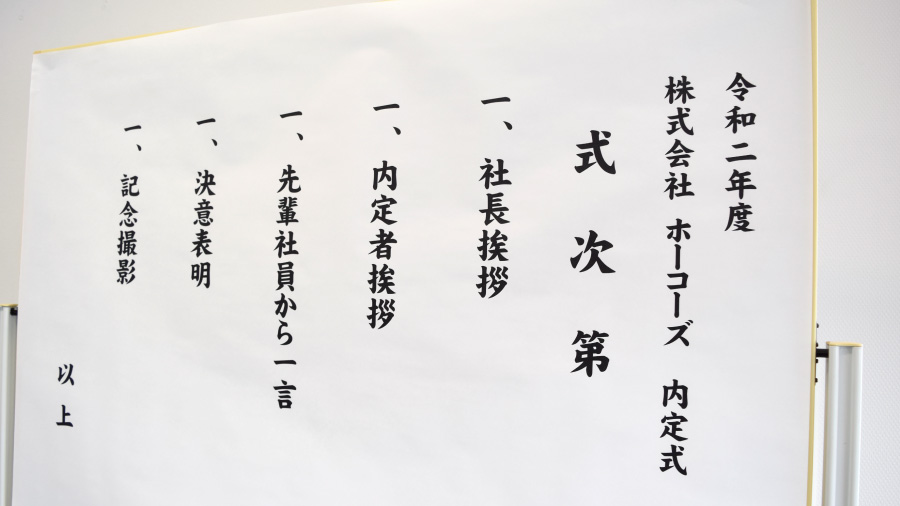 令和二年度
株式会社 ホーコーズ 内定式
式次第
一、社長挨拶
一、内定者挨拶
一、先輩社員から一言
一、決意表明
一、記念撮影
以上